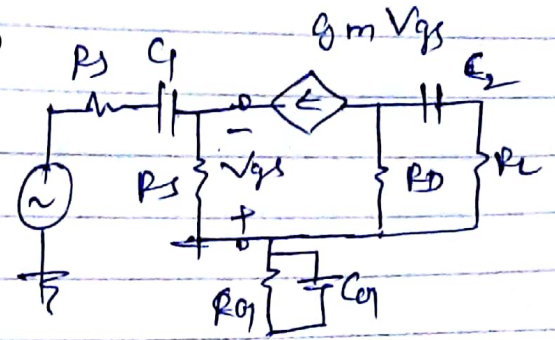 gm Vgs
Rs C1 C2
Rs Vgs RD RL
−
+
~
RG CG